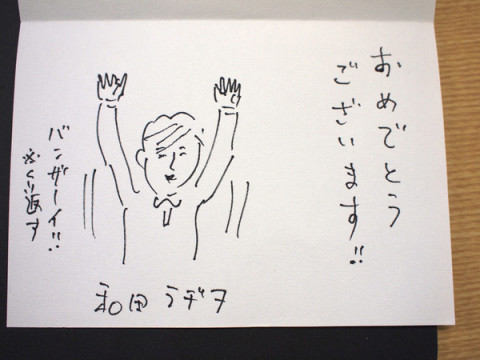 おめでとう
ございます!!
バンザーイ!!
※くり返す
和田ラヂヲ